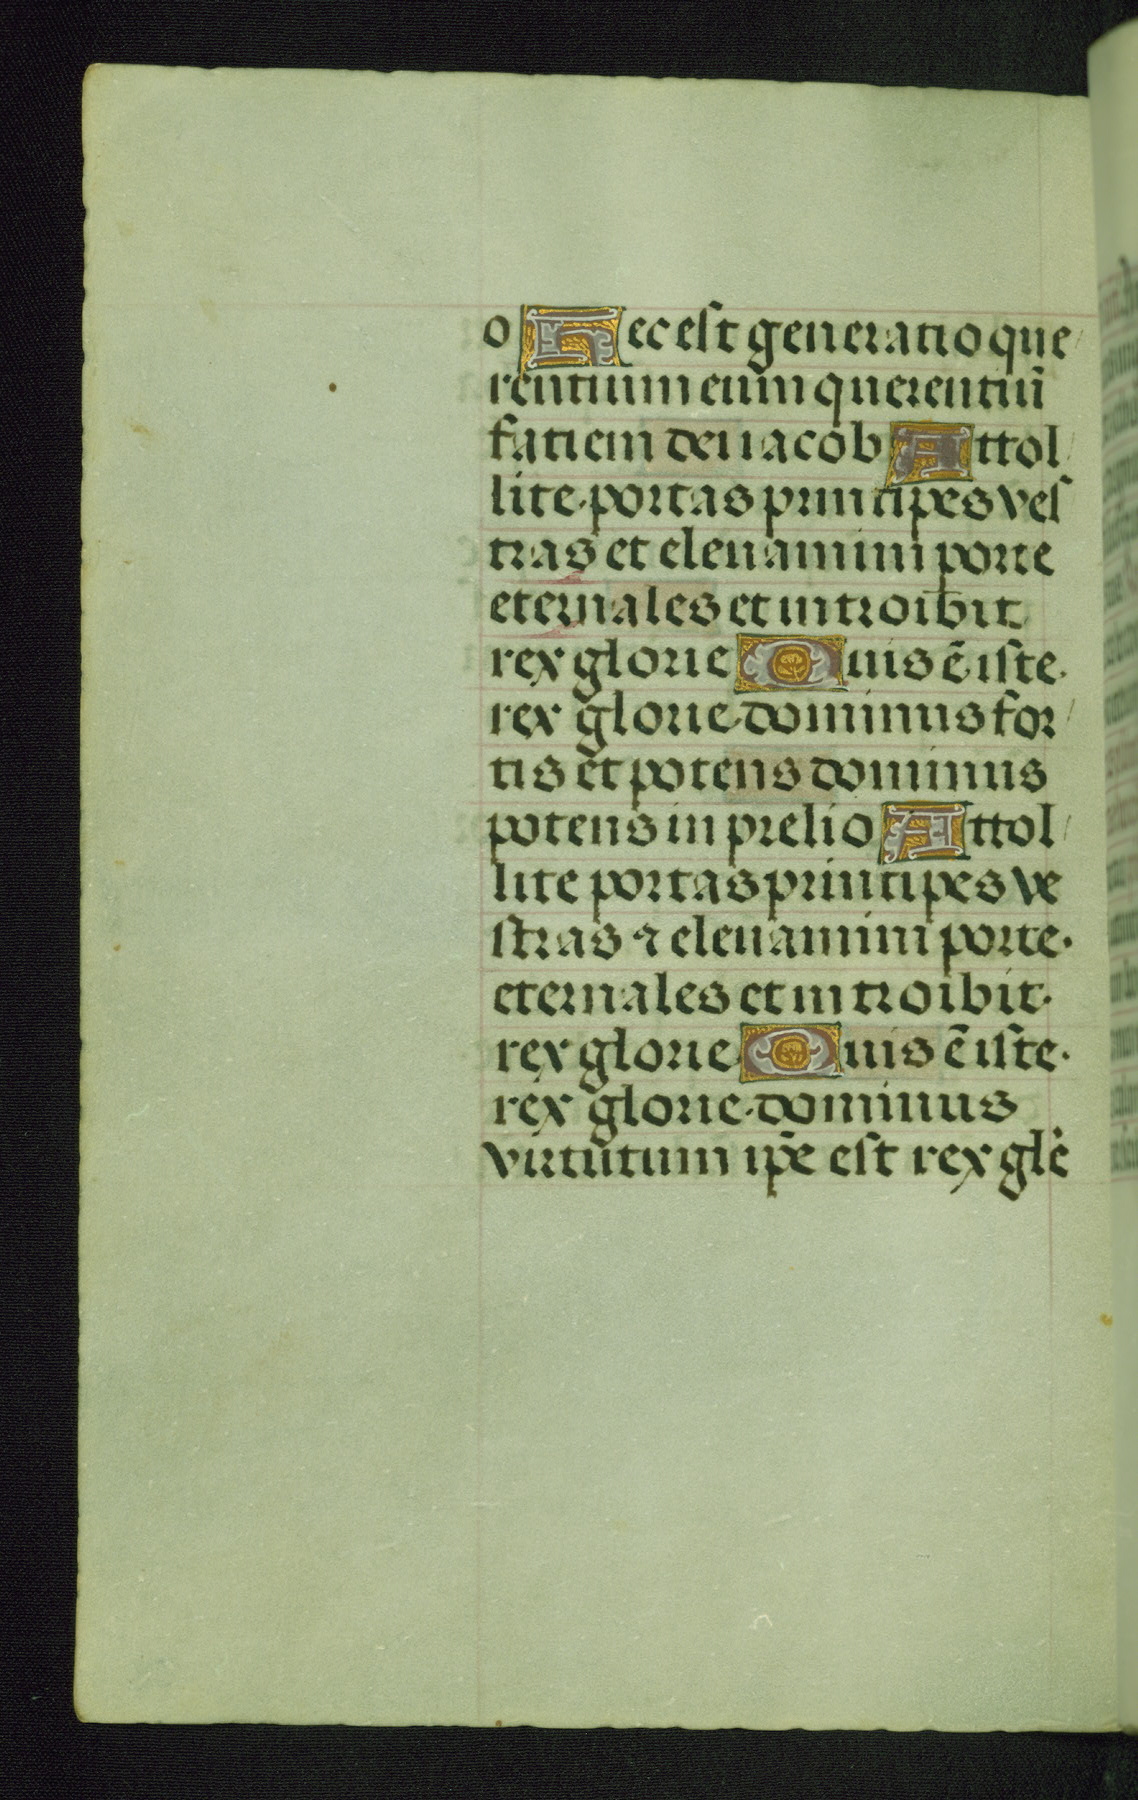 o Hec est generatio que
rentium eum querentiū
faciem dei iacob Attol
lite portas principes ves
tras et eleuamini porte
eternales et introibit
rex glorie Quis ē iste
rex glorie dominus for
tis et potens dominus
potens in prelio Attol
lite portas principes ve
stras ⁊ eleuamini porte.
eternales et introibit.
rex glorie Quis ē iste.
rex glorie. dominus
virtutum ip̄e est rex gl̄e